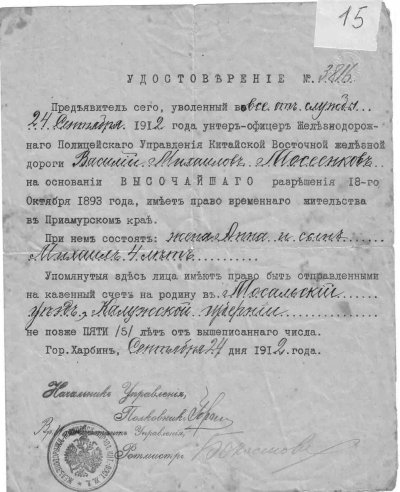 15
УДОСТОВѢРЕНІЕ №.3816.
Предъявитель сего, уволенный вовсе отъ службы
24 Сентября 1912 года унтеръ-офицеръ Желѣзнодорож-
наго Полицейскаго Управленія Китайской Восточной желѣзной
дороги Василій Михаиловъ Мосеенковъ
на основаніи ВЫСОЧАЙШАГО разрѣшенія 18-го
Октября 1893 года, имѣетъ право временнаго жительства
въ Приамурскомъ краѣ.
При немъ состоятъ: жена Анна и сынъ
Михаилъ 4 лѣтъ
Упомянутыя здѣсь лица имѣютъ право быть отправленными
на казенный счетъ на родину въ Мосальскій
уѣздъ, Калужской губерніи
не позже ПЯТИ /5/ лѣтъ отъ вышеписаннаго числа.
Гор.Харбинъ, Сентября 24 дня 1912 года.
Начальникъ Управленія,
Полковникъ
Управленія,
Ротмистръ